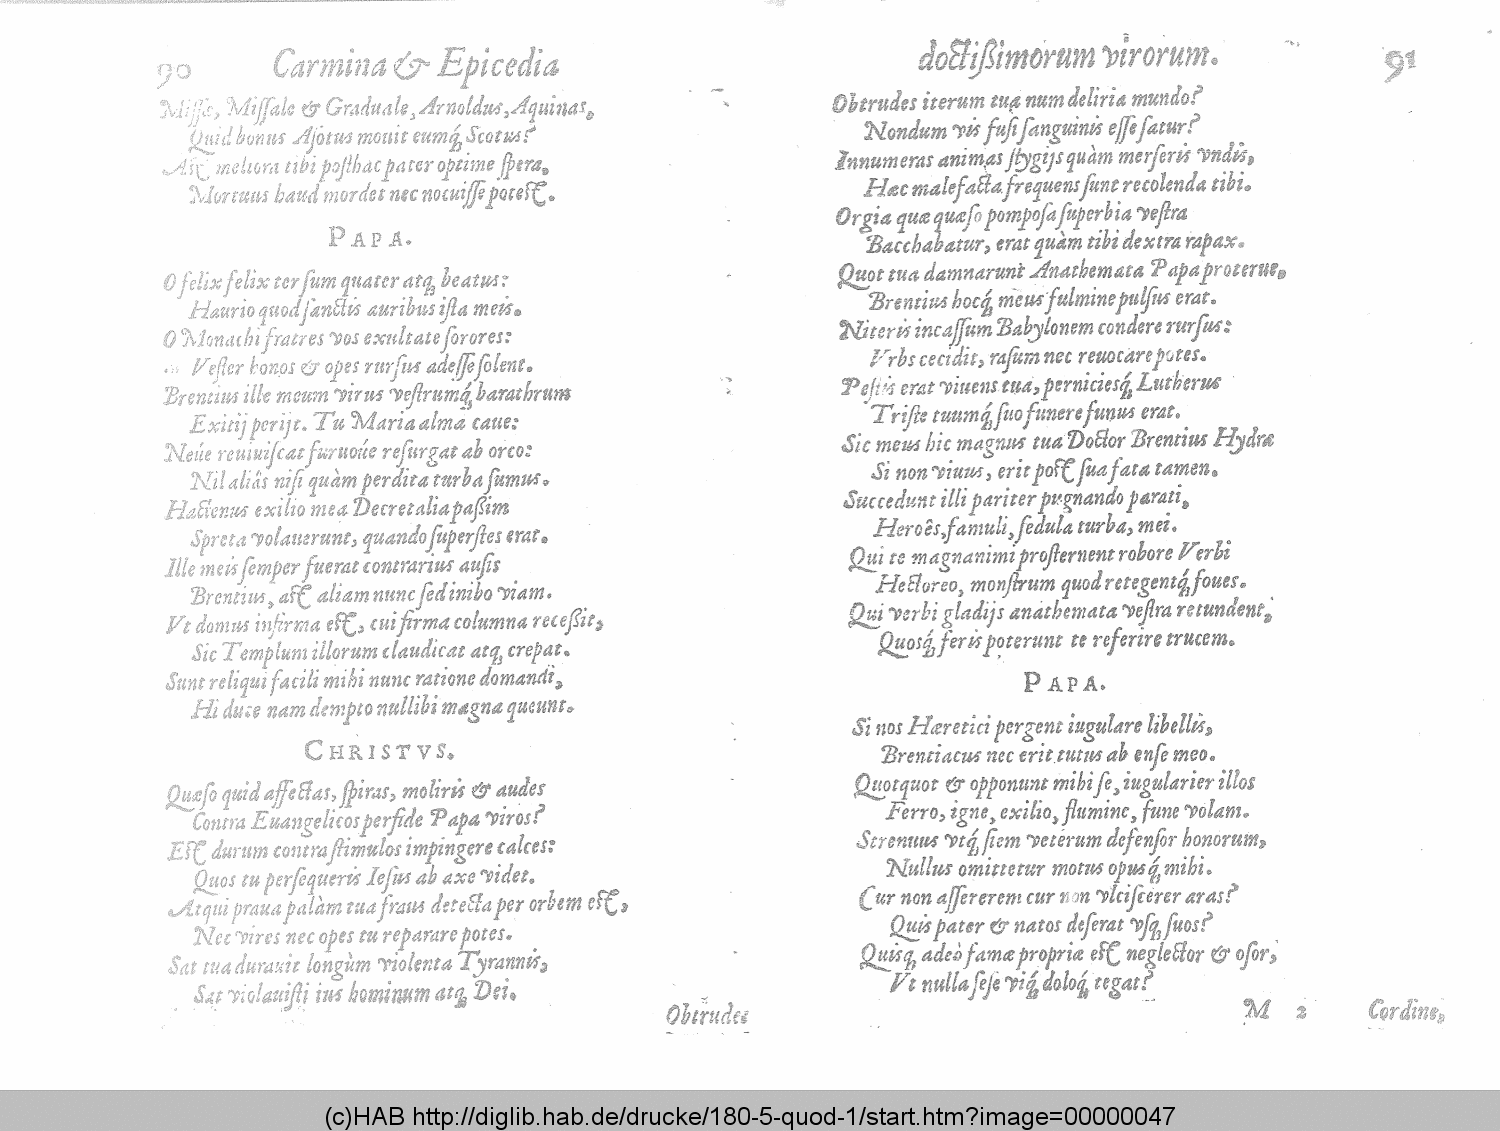 90 Carmina & Epicedia
Missæ, Missale & Graduale, Arnoldus, Aquinas,
Quid bonus Ajotus mouit eumq́ Scotus?
Ast meliora tibi posthac pater optime spera,
Mortuus haud mordet nec nocuisse potest.
PAPA.
O felix felix ter sum quater atq; beatus:
Haurio quod sanctis auribus ista meis.
O Monachi fratres vos exultate sorores:
Vester honos & opes rursus adesse solent.
Brentius ille meum virus vestrumq́; barathrum
Exitij perijt. Tu Maria alma caue:
Neúe reuiuiscat furuoúe resurgat ab orco:
Nil aliâs nisi quàm perdita turba sumus.
Hactenus exilio mea Decretalia paßim
Spreta volauerunt, quando superstes erat.
Ille meis semper fuerat contrarius ausis
Brentius, ast aliam nunc sed inibo viam.
Vt domus infirma est, cui firma columna receßit,
Sic Templum illorum claudicat atq; crepat.
Sunt reliqui facili mihi nunc ratione domandi,
Hi duce nam dempto nullibi magna queunt.
CHRISTVS.
Quæso quid affectas, spiras, moliris & audes
Contra Euangelicos perfide Papa viros?
Est durum contra stimulos impingere calces:
Quos tu persequeris Iesus ab axe videt.
Atqui praua palàm tua fraus detecta per orbem est,
Nec vires nec opes tu reparare potes.
Sat tua durauit longùm violenta Tyrannis,
Sat violauisti ius hominum atq; Dei.
Obtrudes
doctißimorum virorum. 91
Obtrudes iterum tua num deliria mundo?
Nondum vis fusi sanguinis esse satur?
Innumeras animas stygijs quàm merseris vndis,
Hæc malefacta frequens sunt recolenda tibi.
Orgia quæ quæso pomposa superbia vestra
Bacchabatur, erat quàm tibi dextra rapax.
Quot tua damnarunt Anathemata Papa proterue,
Brentius hocq́; meus fulmine pulsus erat.
Niteris incassum Babylonem condere rursus:
Vrbs cecidit, rasum nec reuocare potes.
Pestis erat viuens tua, perniciesq́; Lutherus
Triste tuumq́; suo funere funus erat.
Sic meus hic magnus tua Doctor Brentius Hydræ
Si non viuus, erit post sua fata tamen.
Succedunt illi pariter pugnando parati,
Heroês, famuli, sedula turba, mei.
Qui te magnanimi prosternent robore Verbi
Hectoreo, monstrum quod retegentq́; foues.
Qui verbi gladijs anathemata vestra retundent,
Quosq́; feris poterunt te referire trucem.
PAPA.
Si nos Hæretici pergent iugulare libellis,
Brentiacus nec erit tutus ab ense meo.
Quotquot & opponunt mihi se, iugularier illos
Ferro, igne, exilio, flumine, fune volam.
Strenuus vtq́; siem veterum defensor honorum,
Nullus omittetur motus opusq́; mihi.
Cur non assererem cur non vlciscerer aras?
Quis pater & natos deserat vsq; suos?
Quisq; adeò famæ propriæ est neglector & osor,
Vt nulla sese viq́; doloq́; tegat?
M 2 Cordine,
(c)HAB http://diglib.hab.de/drucke/180-5-quod-1/start.htm?image=00000047